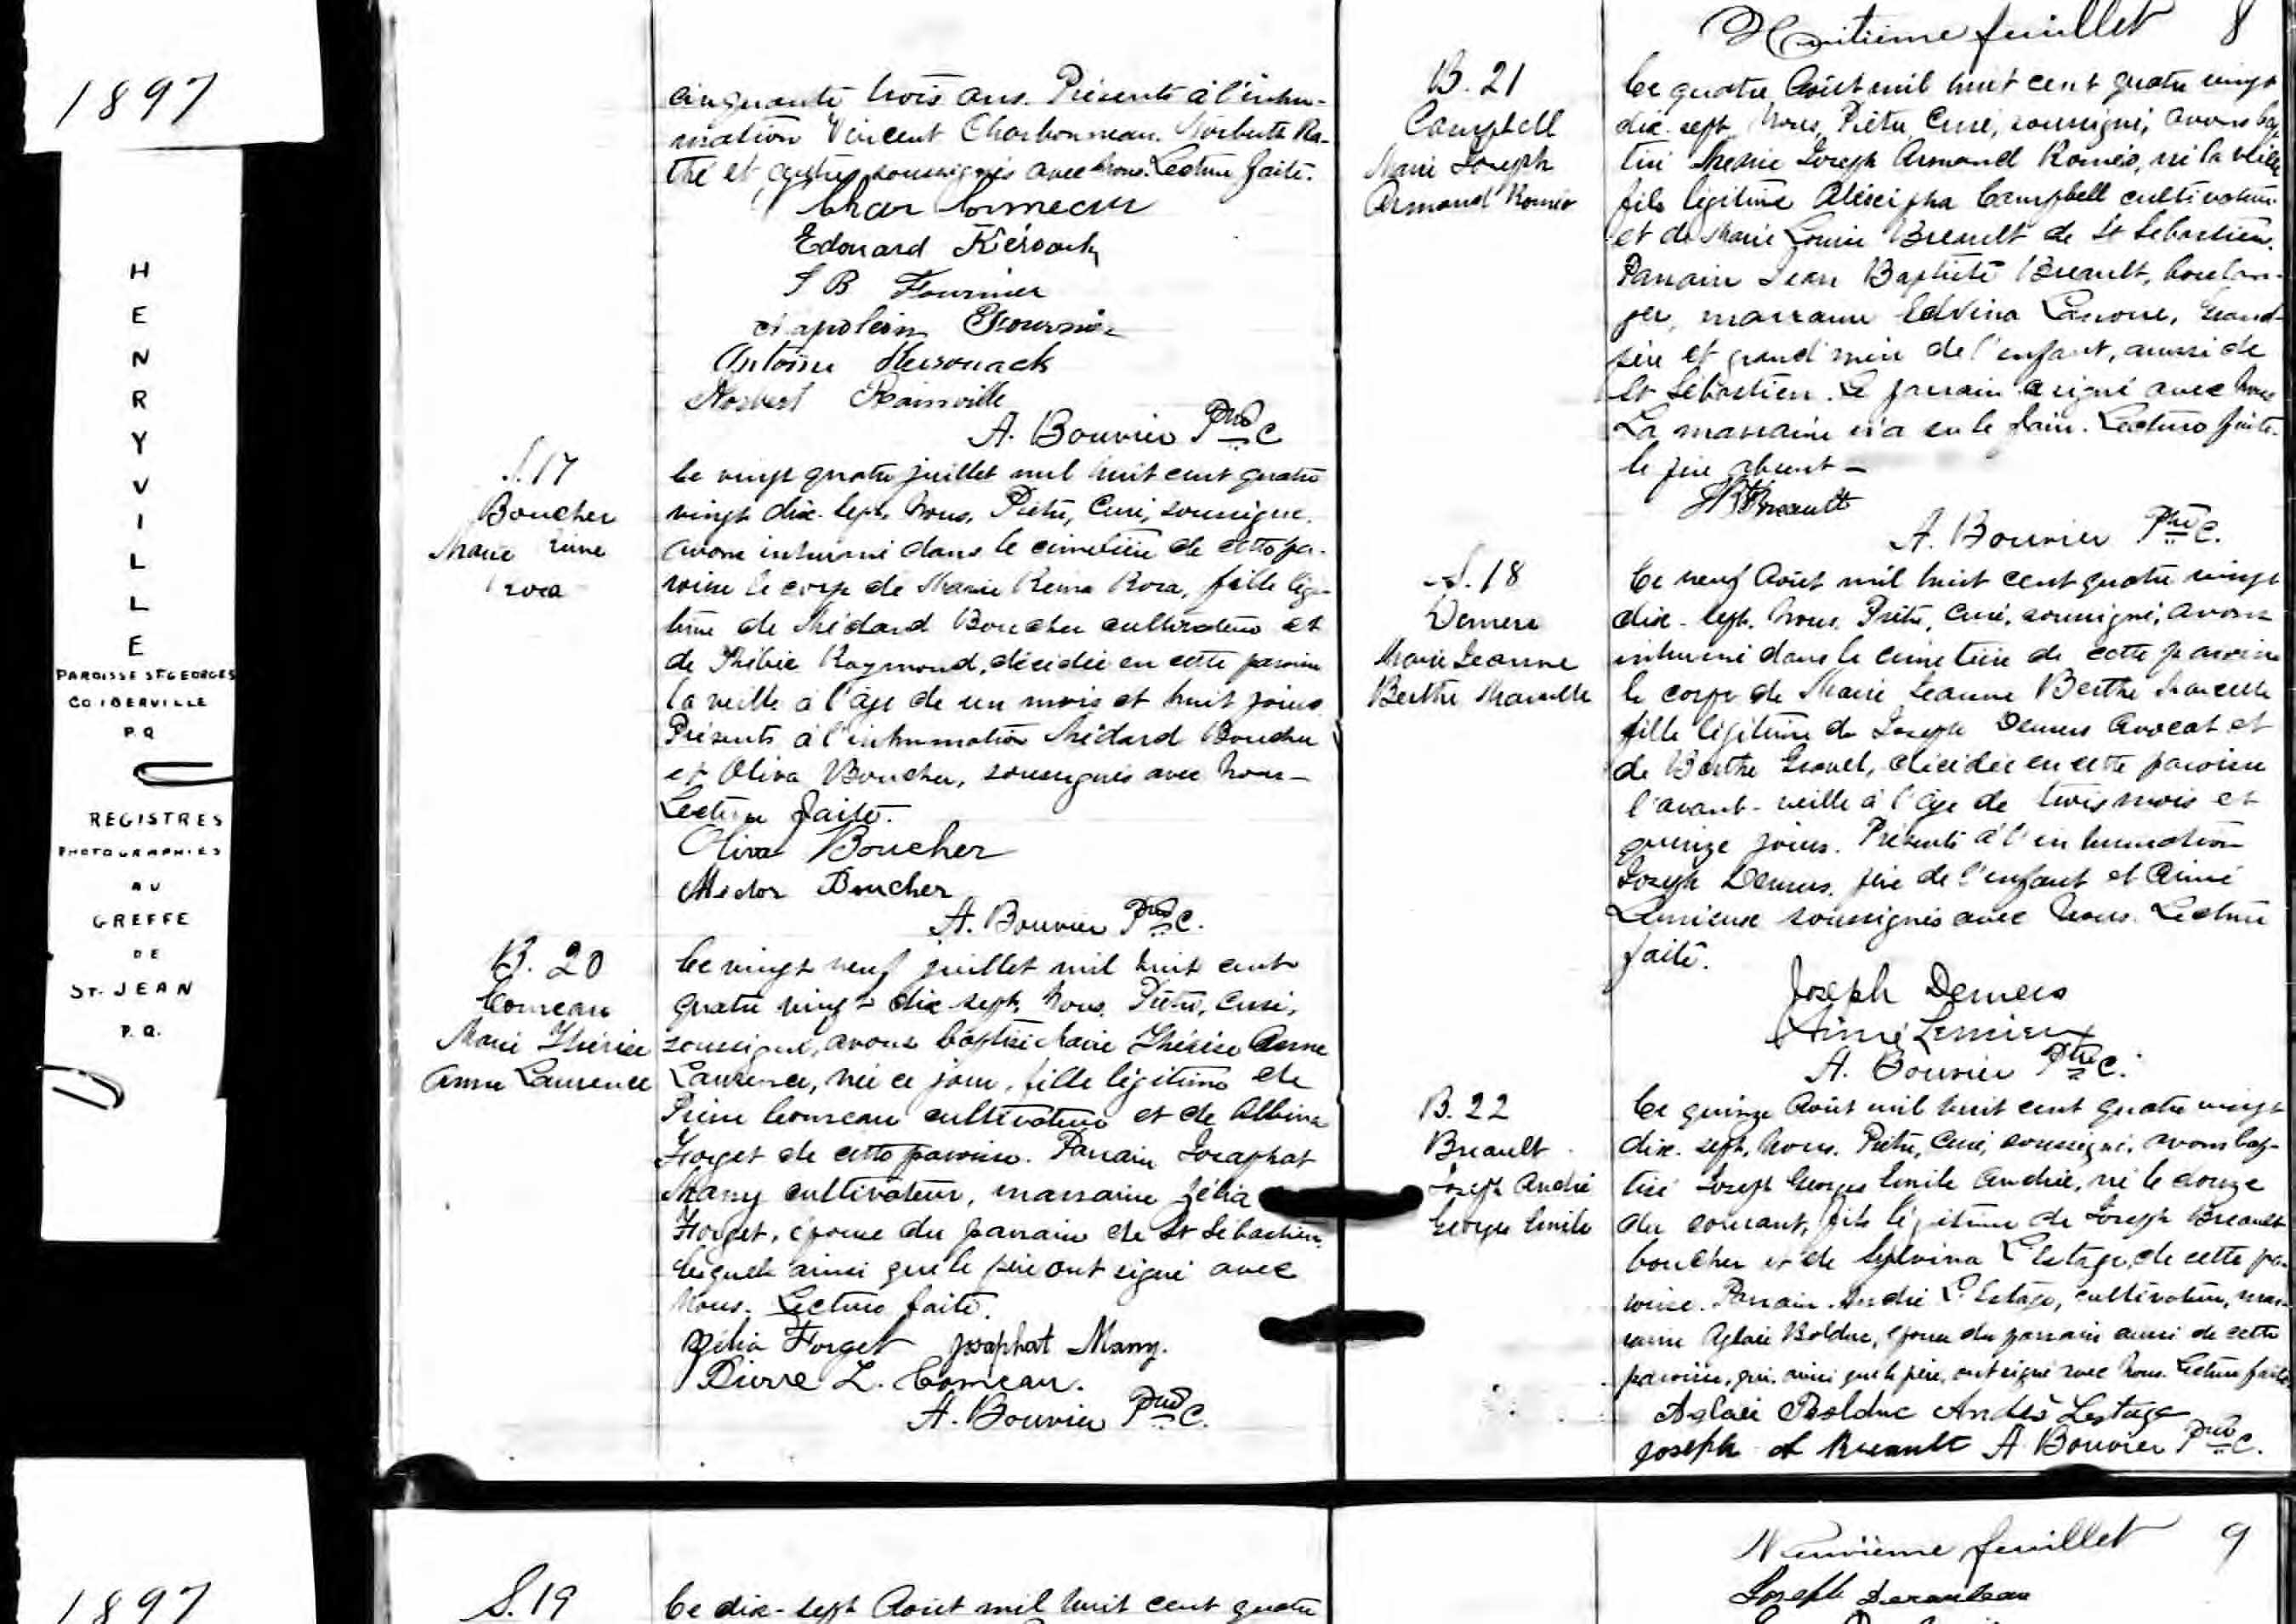 1897
HENRYVILLE
PAROISSE ST GEORGES
CO IBERVILLE
P.Q
REGISTRES
PHOTOGRAPHIES
AU
GREFFE
DE
ST. JEAN
P.Q.
1897
cinquante trois ans. Présents à l'inhu-
mation Vincent Charbonneau. Norbert Ra-
et autres soussignés avec Nous. Lecture faite.
Edouard
J B Fournier
Napoléon Fournier
Antoine
Norbert Rainville
A. Bouvier Ptre C
S. 17
Boucher
Marie
Rosa
Ce vingt quatre juillet mil huit cent quatre
vingt dix-sept, Nous, Prêtre, Curé, soussigné,
avons inhumé dans le cimetière de cette pa-
roisse le corps de Marie Reina Rosa, fille légi-
time de Médard Boucher cultivateur et
de Raymond, décédée en cette paroisse
la veille à l'âge de un mois et huit jours
Présents à l'inhumation Médard Boucher
et Oliva Boucher, soussignés avec Nous—
Lecture faite.
Oliva Boucher
Médor Boucher
A. Bouvier Ptre C.
B. 20
Comeau
Marie Thérèse
Anna Laurence
Ce vingt neuf juillet mil huit cent
quatre vingt dix-sept, Nous, Prêtre, Curé,
soussigné, avons baptisé Marie Thérèse Anna
Laurence, née ce jour, fille légitime de
Pierre Comeau cultivateur et de Albina
Forget de cette paroisse. Parrain Josaphat
Many cultivateur, marraine Zélia
Forget, épouse du parrain de St Sébastien,
lesquels ainsi que le père ont signé avec
Nous. Lecture faite.
Zélia Forget Josaphat Many.
Pierre L. Comeau.
A. Bouvier Ptre C.
Huitième feuillet 8
B. 21
Campbell
Marie Joseph
Armand Roméo
Ce quatre Août mil huit cent quatre vingt
dix-sept, Nous, Prêtre Curé, soussigné, avons bap
tisé Marie Joseph Armand Roméo, né la veille
fils légitime Campbell cultivateur
et de Marie Louise Breault de St Sébastien.
Parrain Jean Baptiste Breault, boulan-
ger, marraine Edvina, Grand-
père et grand'mère de l'enfant, aussi de
St Sébastien. Le parrain a signé avec Nous
La marraine n'a su le faire. Lecture faite.
le père absent—
JB Breault
A. Bouvier Ptre C.
S. 18
Demers
Marie Jeanne
Berthe Marcelle
Ce neuf Août mil huit cent quatre vingt
dix-sept, Nous, Prêtre, Curé, soussigné, avons
inhumé dans le cimetière de cette paroisse
le corps de Marie Jeanne Berthe Marcelle
fille légitime de Joseph Demers Avocat et
de Berthe Gravel, décédée en cette paroisse
l'avant-veille à l'âge de trois mois et
quinze jours. Présents à l'inhumation
Joseph Demers, père de l'enfant et Aimé
Lemieux soussignés avec Nous. Lecture
faite.
Joseph Demers
Aimé Lemieux
A. Bouvier Ptre C.
B. 22
Breault
Joseph André
Georges Emile
Ce quinze Août mil huit cent quatre vingt
dix-sept, Nous, Prêtre, Curé, soussigné, avons bap-
tisé Joseph Georges Emile André, né le douze
du courant, fils légitime de Joseph Breault
boucher et de Sylvina L'Estage, de cette pa-
roisse. Parrain André L'Estage, cultivateur, mar-
raine Aglaé Bolduc, épouse du parrain aussi de cette
paroisse, qui, ainsi que le père, ont signé avec Nous. Lecture faite.
Aglaée Bolduc André Lestage
Joseph Breault A. Bouvier Ptre C.
S. 19
Ce dix-sept Août mil huit cent quatre
Neuvième feuillet 9
Joseph